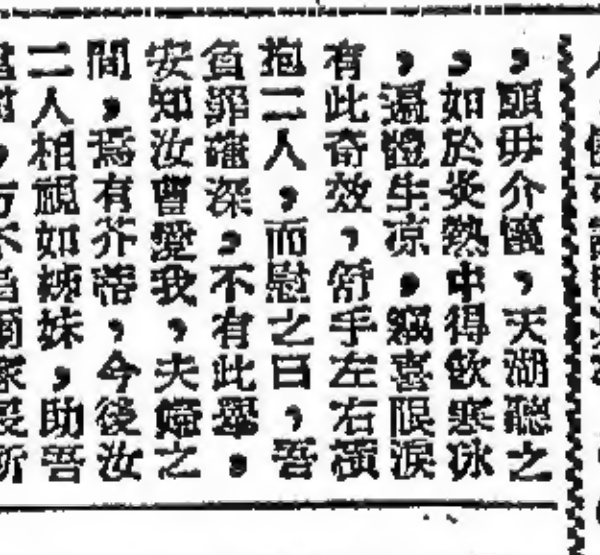 ，願毋介懷，天湖聽之
，如於炎熱中得飲寒冰
，遍體生涼，竊喜限淚
有此奇效，舒手左右攬
抱二人，而慰之曰，吾
負罪雖深，不有此舉，
安知汝曹愛我，夫婦之
間，焉有芥蒂，今後汝
二人相視如姊妹，助吾